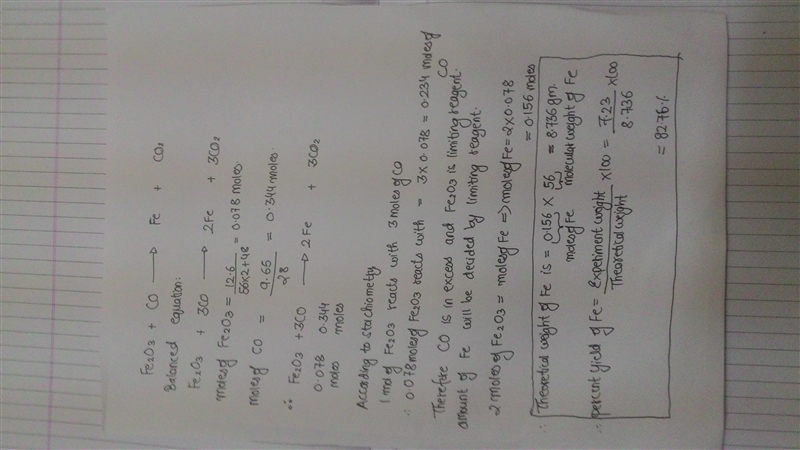 Fe2O3 + CO ⟶ Fe + CO2
Balanced equation:
Fe2O3 + 3CO ⟶ 2Fe + 3CO2
moles of Fe2O3 = 12.6 / 56x2+48 = 0.078 moles.
moles of CO = 9.65 / 28 = 0.344 moles.
∴ Fe2O3 + 3CO ⟶ 2Fe + 3CO2
0.078 0.344
moles moles
According to stoichiometry
1 mol of Fe2O3 reacts with 3 moles of CO
∴ 0.078 moles of Fe2O3 reacts with = 3 x 0.078 = 0.234 moles of CO
Therefore CO is in excess and Fe2O3 is limiting reagent.
amount of Fe will be decided by limiting reagent.
2 moles of Fe2O3 = moles of Fe ⇒ moles of Fe = 2 x 0.078
= 0.156 moles
∴ Theoretical weight of Fe is = 0.156 x 56 = 8.736 gm.
moles of Fe molecular weight of Fe
∴ percent yield of Fe = Experiment weight / Theoretical weight x100 = 7.23 / 8.736 x100
= 82.76%